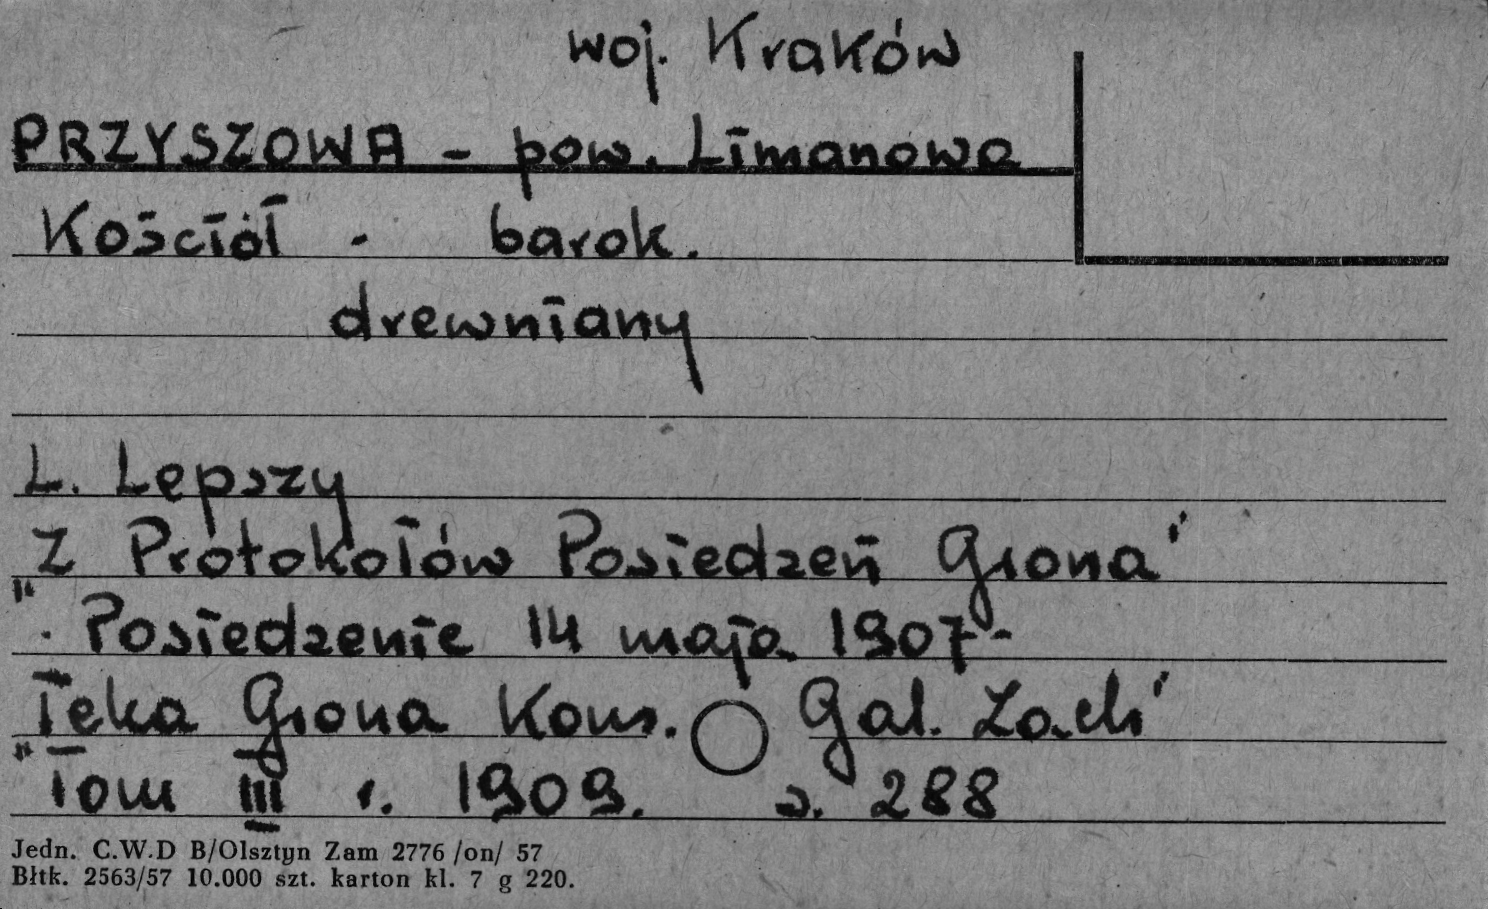 woj. Kraków
PRZYSZOWA - pow. Limanowa
Kościół - barok.
drewniany
L. Lepszy
"Z Protokołów Posiedzeń Grona"
. Posiedzenie 14 maja 1907 -
"Teka Grona Kons. Gal. Zach"
Tom III r. 1909. s. 288
Jedn. C.W.D B/Olsztyn Zam 2776 /on/ 57
Błtk. 2563/57 10.000 szt. karton kl. 7 g 220.